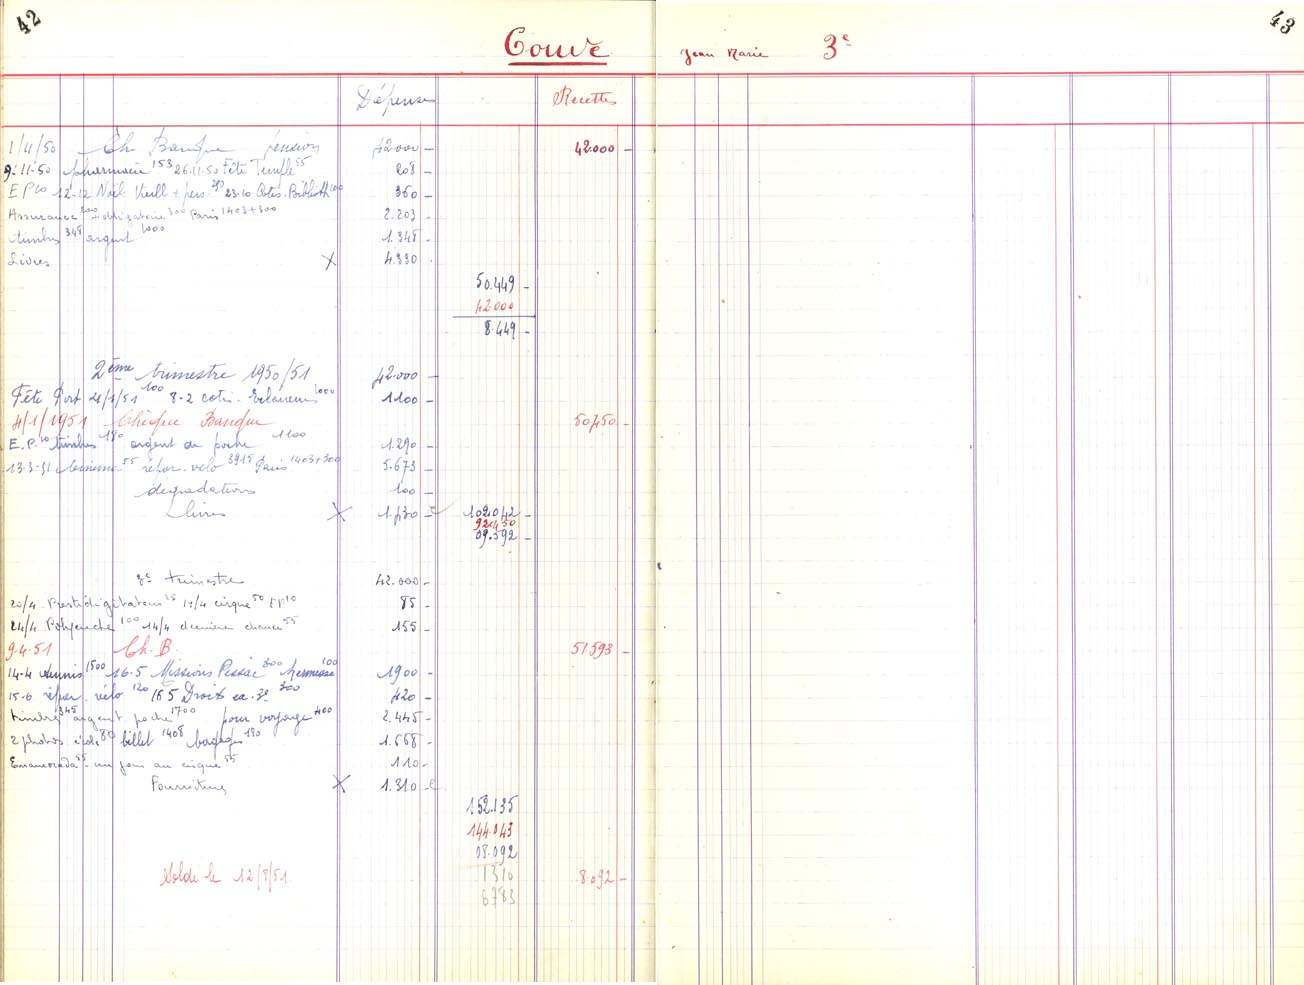 42
43
Couve Jean Marie 3e
Dépense Recettes
1/4/50 Ch. Banque pension 42000 - 42.000 -
9-11-50 pharmacie 153 26.11.50 Fête Temple 55 208 -
E P 10 12-12 Noël Vieill + pers. 250 23.10 Cotis. Biblioth 100 360 -
Assurance 200 + obligatoire 300 Paris 1403+300 2.203 -
timbres 348 argent 1000 1.348 -
Livres X 4.330 -
50.449 -
42000
8.449 -
2ème trimestre 1950/51 42.000 -
Fête Port 21/1/51 100 8-2 cotis. Eclaireurs 1000 1100 -
4/1/1951 Chèque Banque 50450 -
E.P. 10 timbres 180 argent de poche 1100 1.290 -
13.3-51 Cinéma 55 répar. vélo 3915 Paris 1403+300 5.673 -
dégradations 100 -
Livres X 1.430 - 102.042 -
92.450
09.592 -
3e trimestre 42.000 -
20/4 Prestidigitateur 25 12/4 cirque 50 EP 10 85 -
24/4 100 14/4 dernière chance 55 155 -
9.4.51 Ch. B. 51593 -
14-4 tennis 1500 16.5 Missions Pessac 300 kermesse 100 1900 -
15-6 répar. vélo 120 16 5 Droits ex. 300 420 -
timbre 345 argent poche 1700 pour voyage 400 2.445 -
2 photos école 80 billet 1408 bagages 180 1.668 -
Enamorada 55 - un jour au cirque 55 110 -
Fournitures X 1.310 -
152.135
144.043
08.092
1310
Soldé le 12/8/51 8.092 -
6783